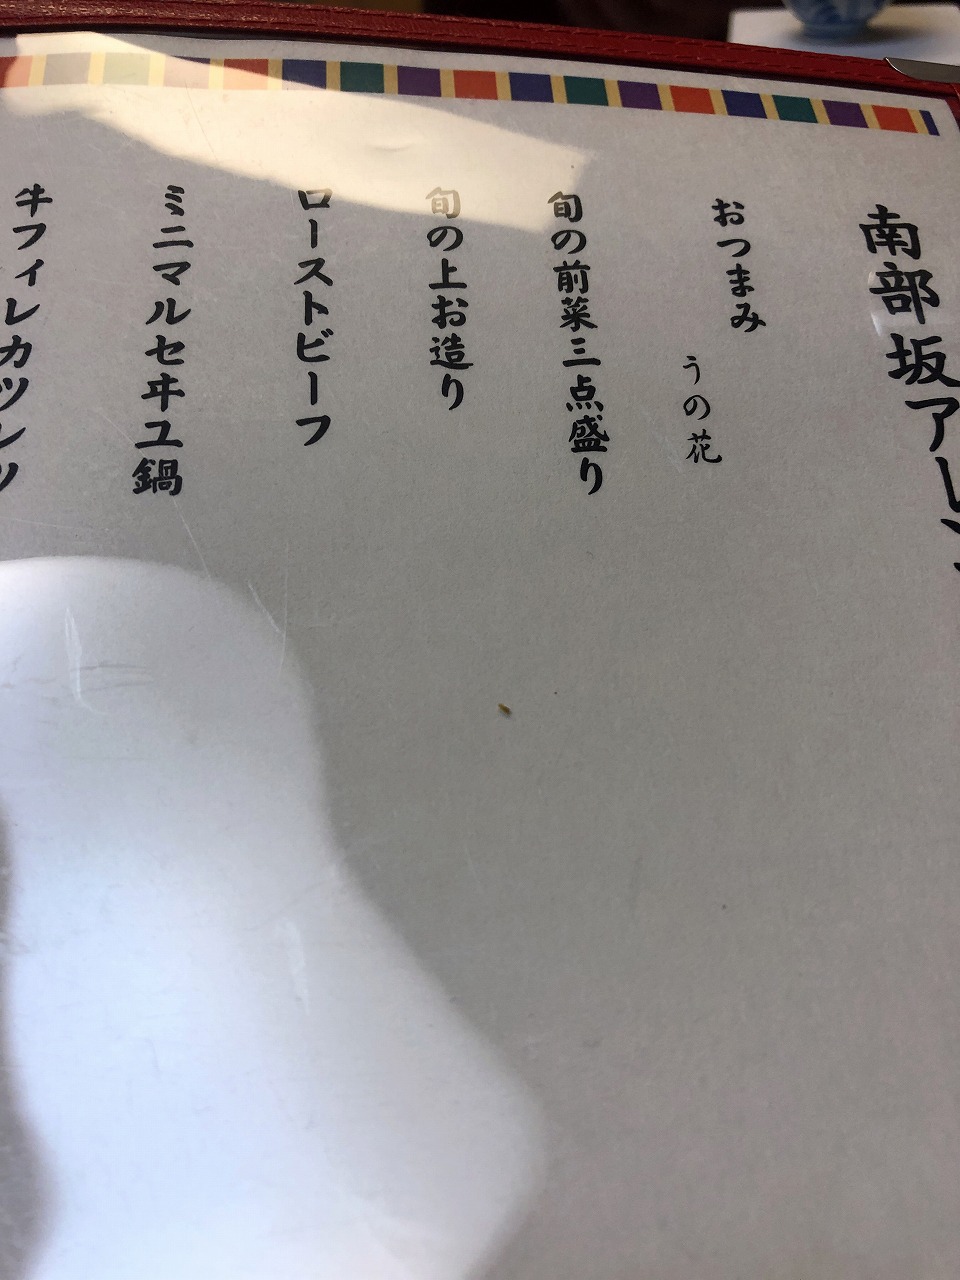 南部坂アレン
おつまみ
うの花
旬の前菜三点盛り
旬の上お造り
ローストビーフ
ミニマルセヰユ鍋
牛フィレカツレツ